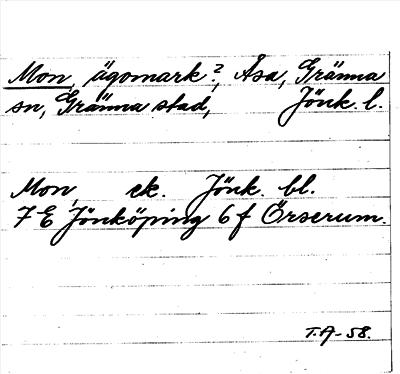 Mon, ägomark?, Åsa, Gränna
sn, Gränna stad, Jönk. l.
Mon, ek. Jönk. bl.
7 E Jönköping 6 f Örserum.
T.A-58.